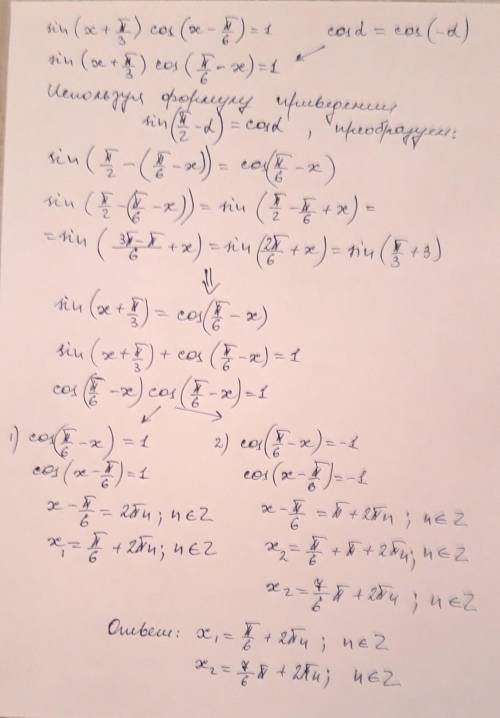 sin(x + π/3) cos(x - π/6) = 1 cos α = cos(-α)
sin(x + π/3) cos(π/6 - x) = 1
Используя формулу приведения
sin(π/2 - α) = cos α, преобразуем:
sin(π/2 - (π/6 - x)) = cos(π/6 - x)
sin(π/2 - (π/6 - x)) = sin(π/2 - π/6 + x) =
= sin(3π-π/6 + x) = sin(2π/6 + x) = sin(π/3 + 3)
⇓
sin(x + π/3) = cos(π/6 - x)
sin(x + π/3) + cos(π/6 - x) = 1
cos(π/6 - x) cos(π/6 - x) = 1
1) cos(π/6 - x) = 1 2) cos(π/6 - x) = -1
cos(x - π/6) = 1 cos(x - π/6) = -1
x - π/6 = 2πn; n∈Z x - π/6 = π + 2πn; n∈Z
x₁ = π/6 + 2πn; n∈Z x₂ = π/6 + π + 2πn; n∈Z
x₂ = 7/6 π + 2πn; n∈Z
Ответ: x₁ = π/6 + 2πn; n∈Z
x₂ = 7/6 π + 2πn; n∈Z